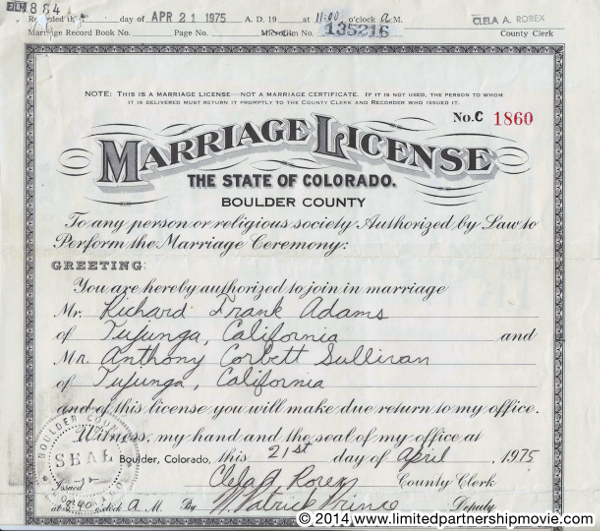 FILM 884
Recorded the day of APR 21 1975 A.D. 19 at 11:00 o'clock A M. CLELA A. ROREX
Marriage Record Book No. Page No. Microfilm No. 135216 County Clerk
NOTE: THIS IS A MARRIAGE LICENSE—NOT A MARRIAGE CERTIFICATE. IF IT IS NOT USED, THE PERSON TO WHOM
IT IS DELIVERED MUST RETURN IT PROMPTLY TO THE COUNTY CLERK AND RECORDER WHO ISSUED IT.
No. C 1860
MARRIAGE LICENSE
THE STATE OF COLORADO.
BOULDER COUNTY
To any person or religious society Authorized by Law to
Perform the Marriage Ceremony:
GREETING:
You are hereby authorized to join in marriage
Mr. Richard Frank Adams
of Tujunga, California and
Mr. Anthony Corbett Sullivan
of Tujunga, California
and of this license you will make due return to my office.
Witness, my hand and the seal of my office at
Boulder, Colorado, this 21st day of April 1975
BOULDER COUNTY
SEAL
COLORADO
Issued Clela A Rorex County Clerk
at o'clock A M. By Patrick Prince Deputy
© 2014 www.limitedpartnershipmovie.com